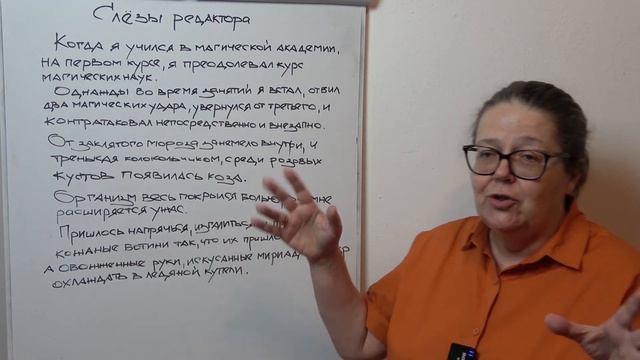 Слёзы редактора
Когда я учился в магической академии,
на первом курсе, я преодолевал курс
магических наук.
Однажды во время занятий я встал, отбил
два магических удара, увернулся от третьего, и
контратаковал непосредственно и внезапно.
От заклятого мороза занемело внутри, и
тренькая колокольчиком, среди розовых
кустов появилась коза.
Организм весь покрылся
расширяется ужас.
Пришлось напрячься,
кожаные ботини так, что их
а обожженные руки, искусанные
охлаждать в ледяной купели.